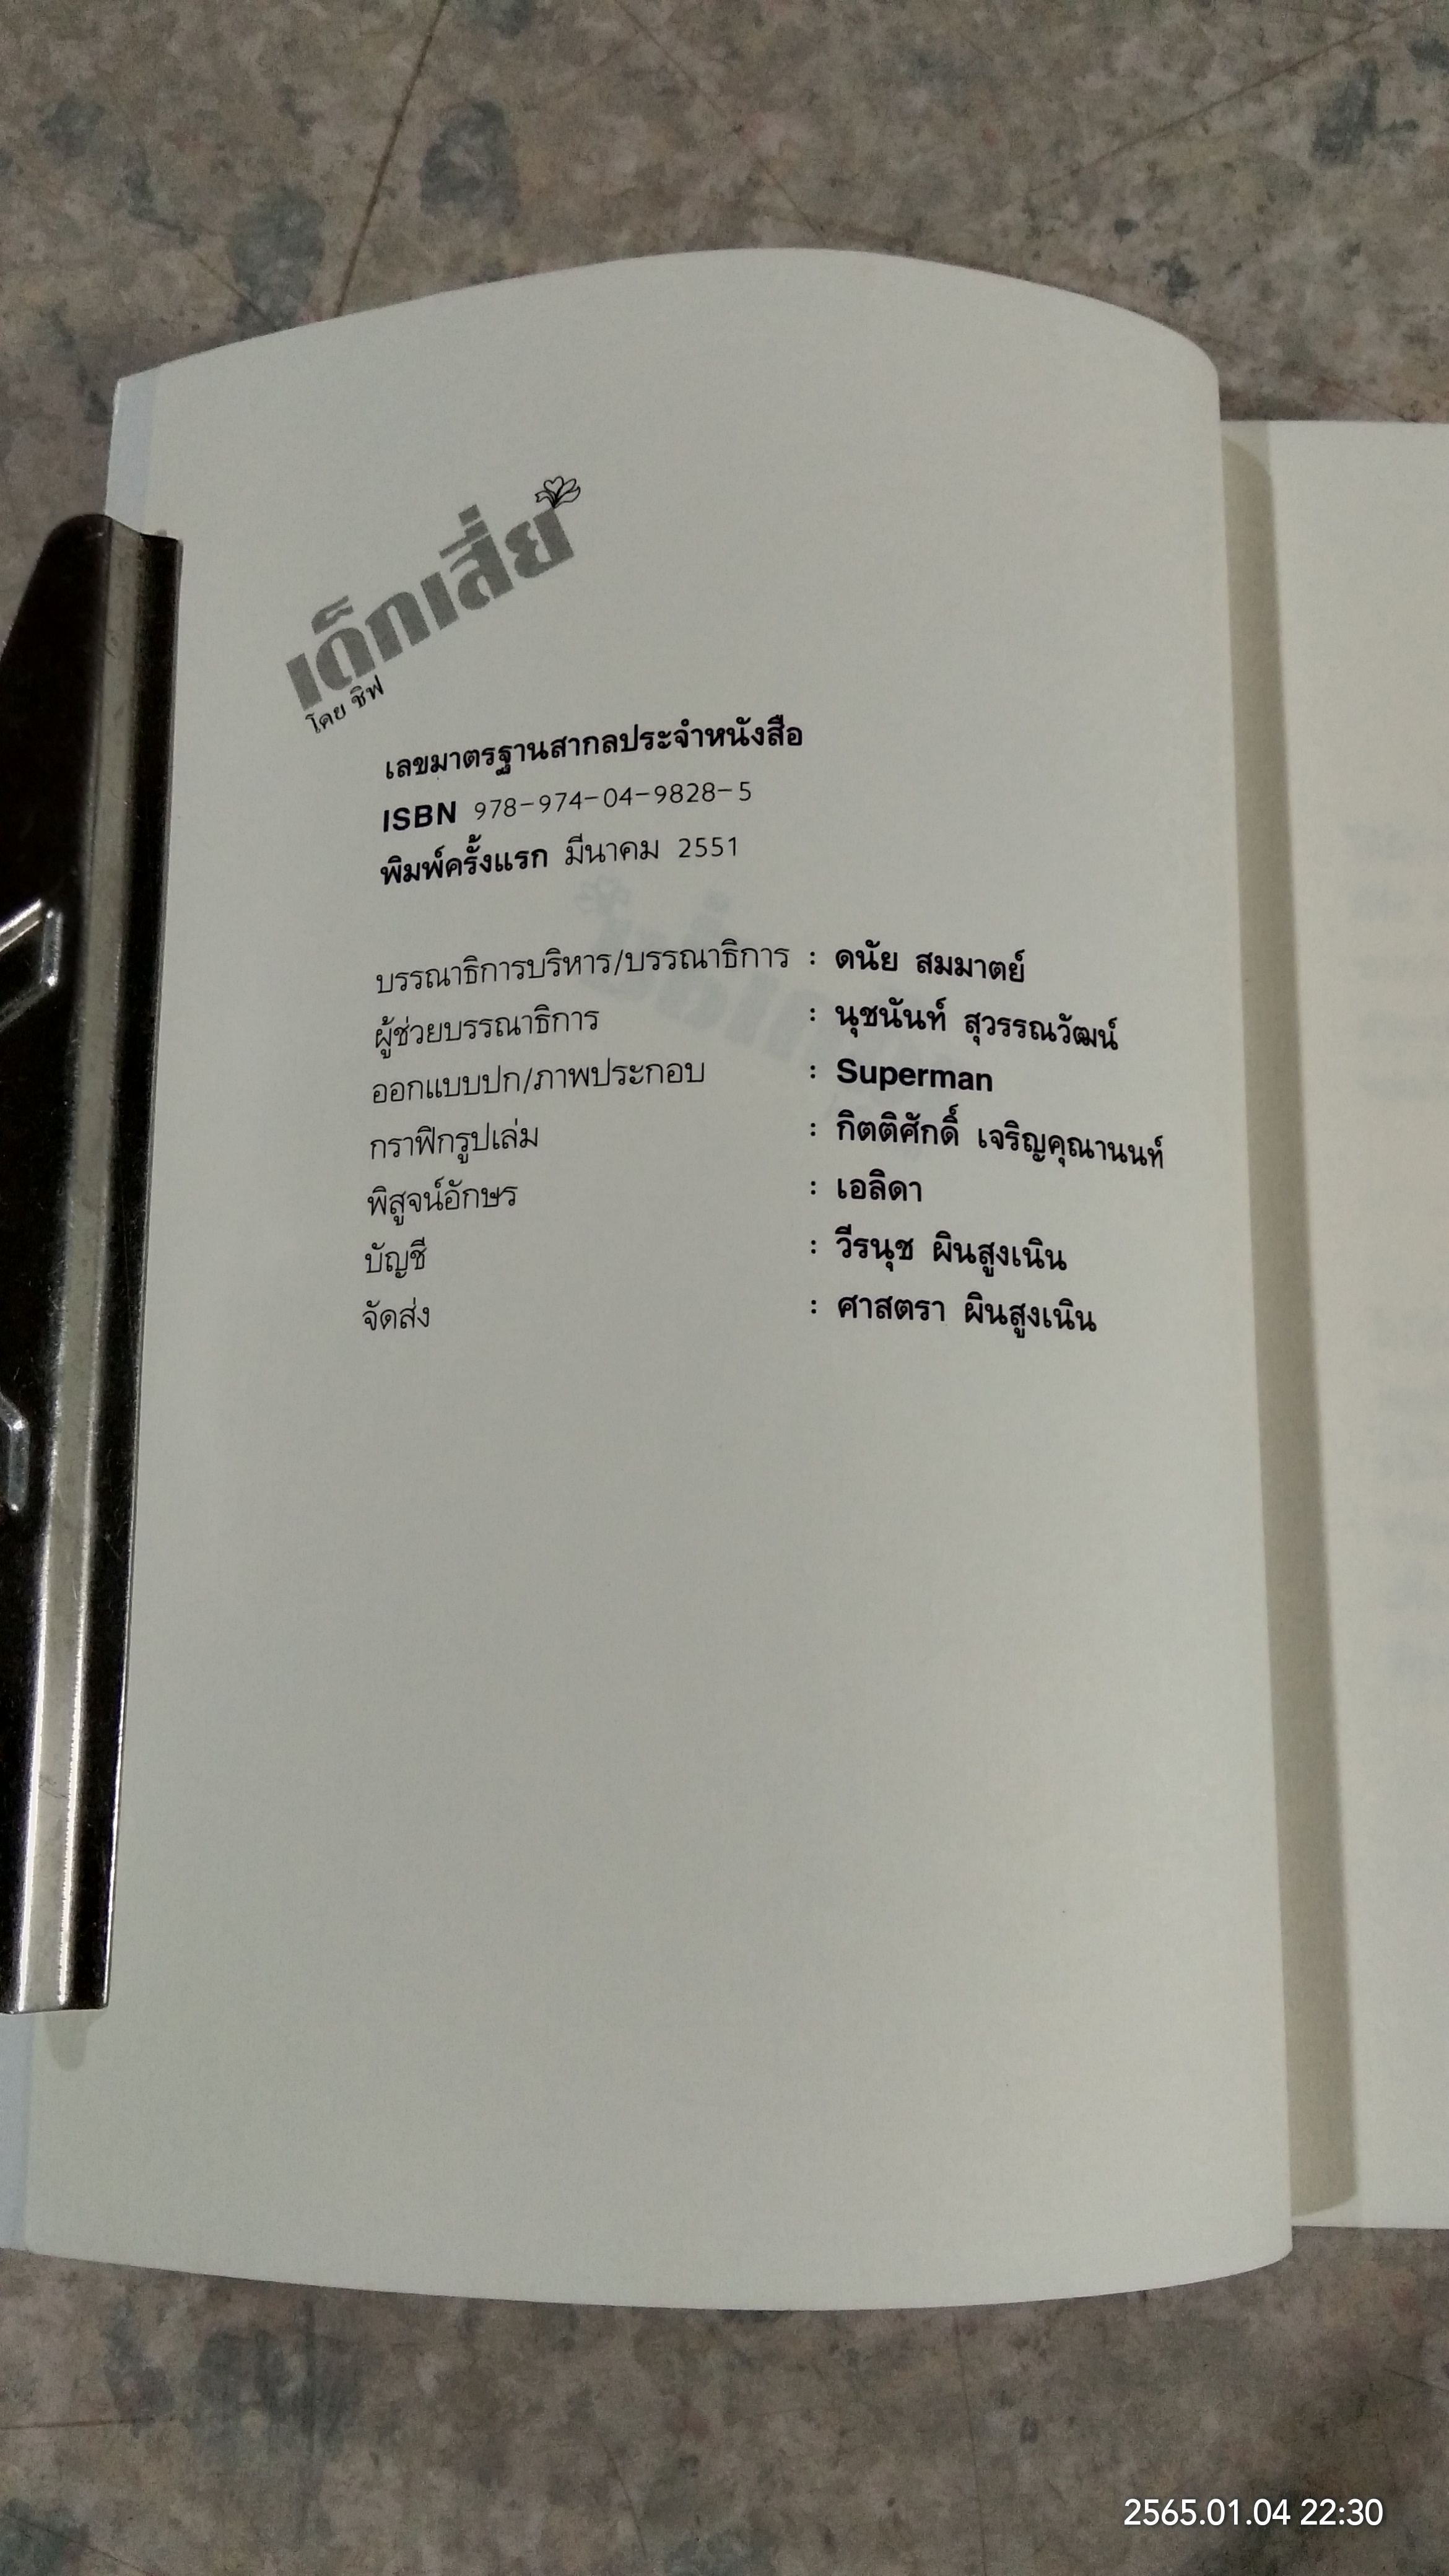 เด็กเสี่ย
โดย ชิฟ
เลขมาตรฐานสากลประจำหนังสือ
ISBN 978-974-04-9828-5
พิมพ์ครั้งแรก มีนาคม 2551
บรรณาธิการบริหาร/บรรณาธิการ : ดนัย สมมาตย์
ผู้ช่วยบรรณาธิการ : นุชนันท์ สุวรรณวัฒน์
ออกแบบปก/ภาพประกอบ : Superman
กราฟิกรูปเล่ม : กิตติศักดิ์ เจริญคุณานนท์
พิสูจน์อักษร : เอลิดา
บัญชี : วีรนุช ผินสูงเนิน
จัดส่ง : ศาสตรา ผินสูงเนิน
2565.01.04 22:30